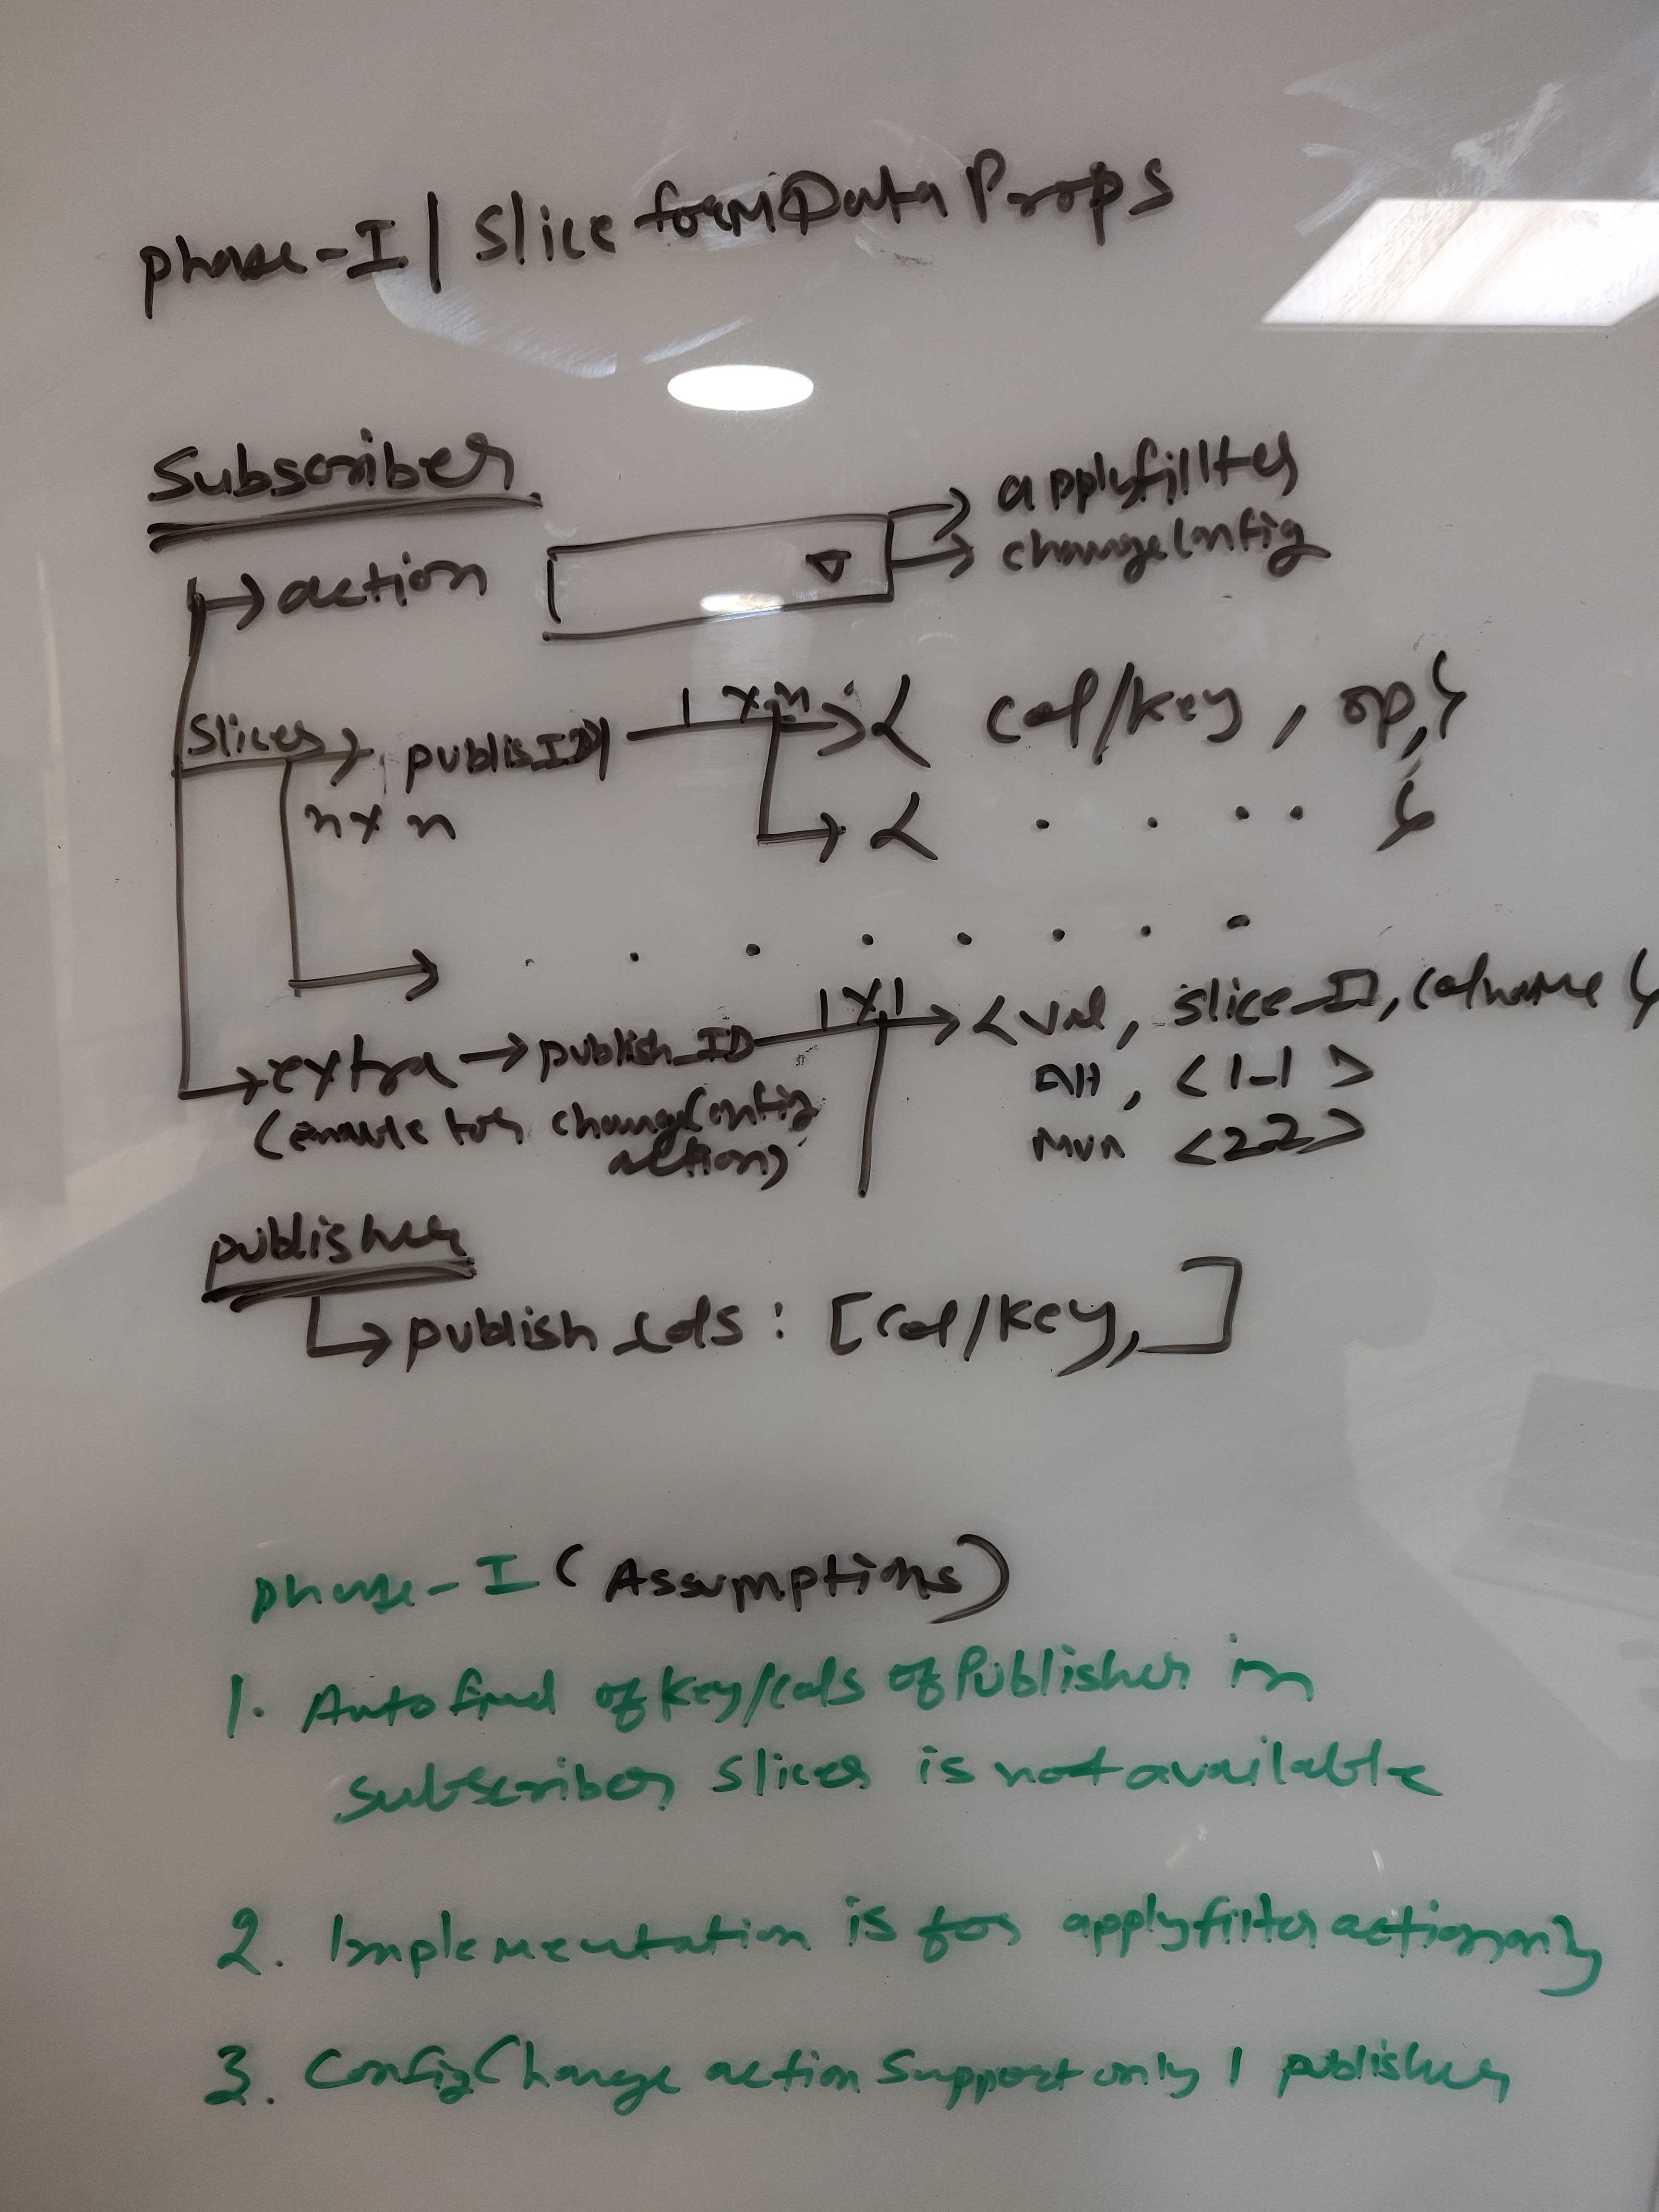 phase-I | Slice formData Props
Subscriber
→ action
→ applyfillter
→ changeConfig
Slices → publisID 1 x n → { col/key, op, }
n x n
→ { . . . . }
→ . . . . . . . .
→ extra → publish_ID 1 x 1 → { val, slice_ID, colname }
(enable for changeConfig
action)
All, <1-1>
<22>
publisher
→ publish_cols : [col/key, ]
phase-I (Assumptions)
1. Auto find of key/cols of Publisher in
subscriber slices is not available
2. Implementation is for applyfilter action only
3. ConfigChange action Support only 1 publisher